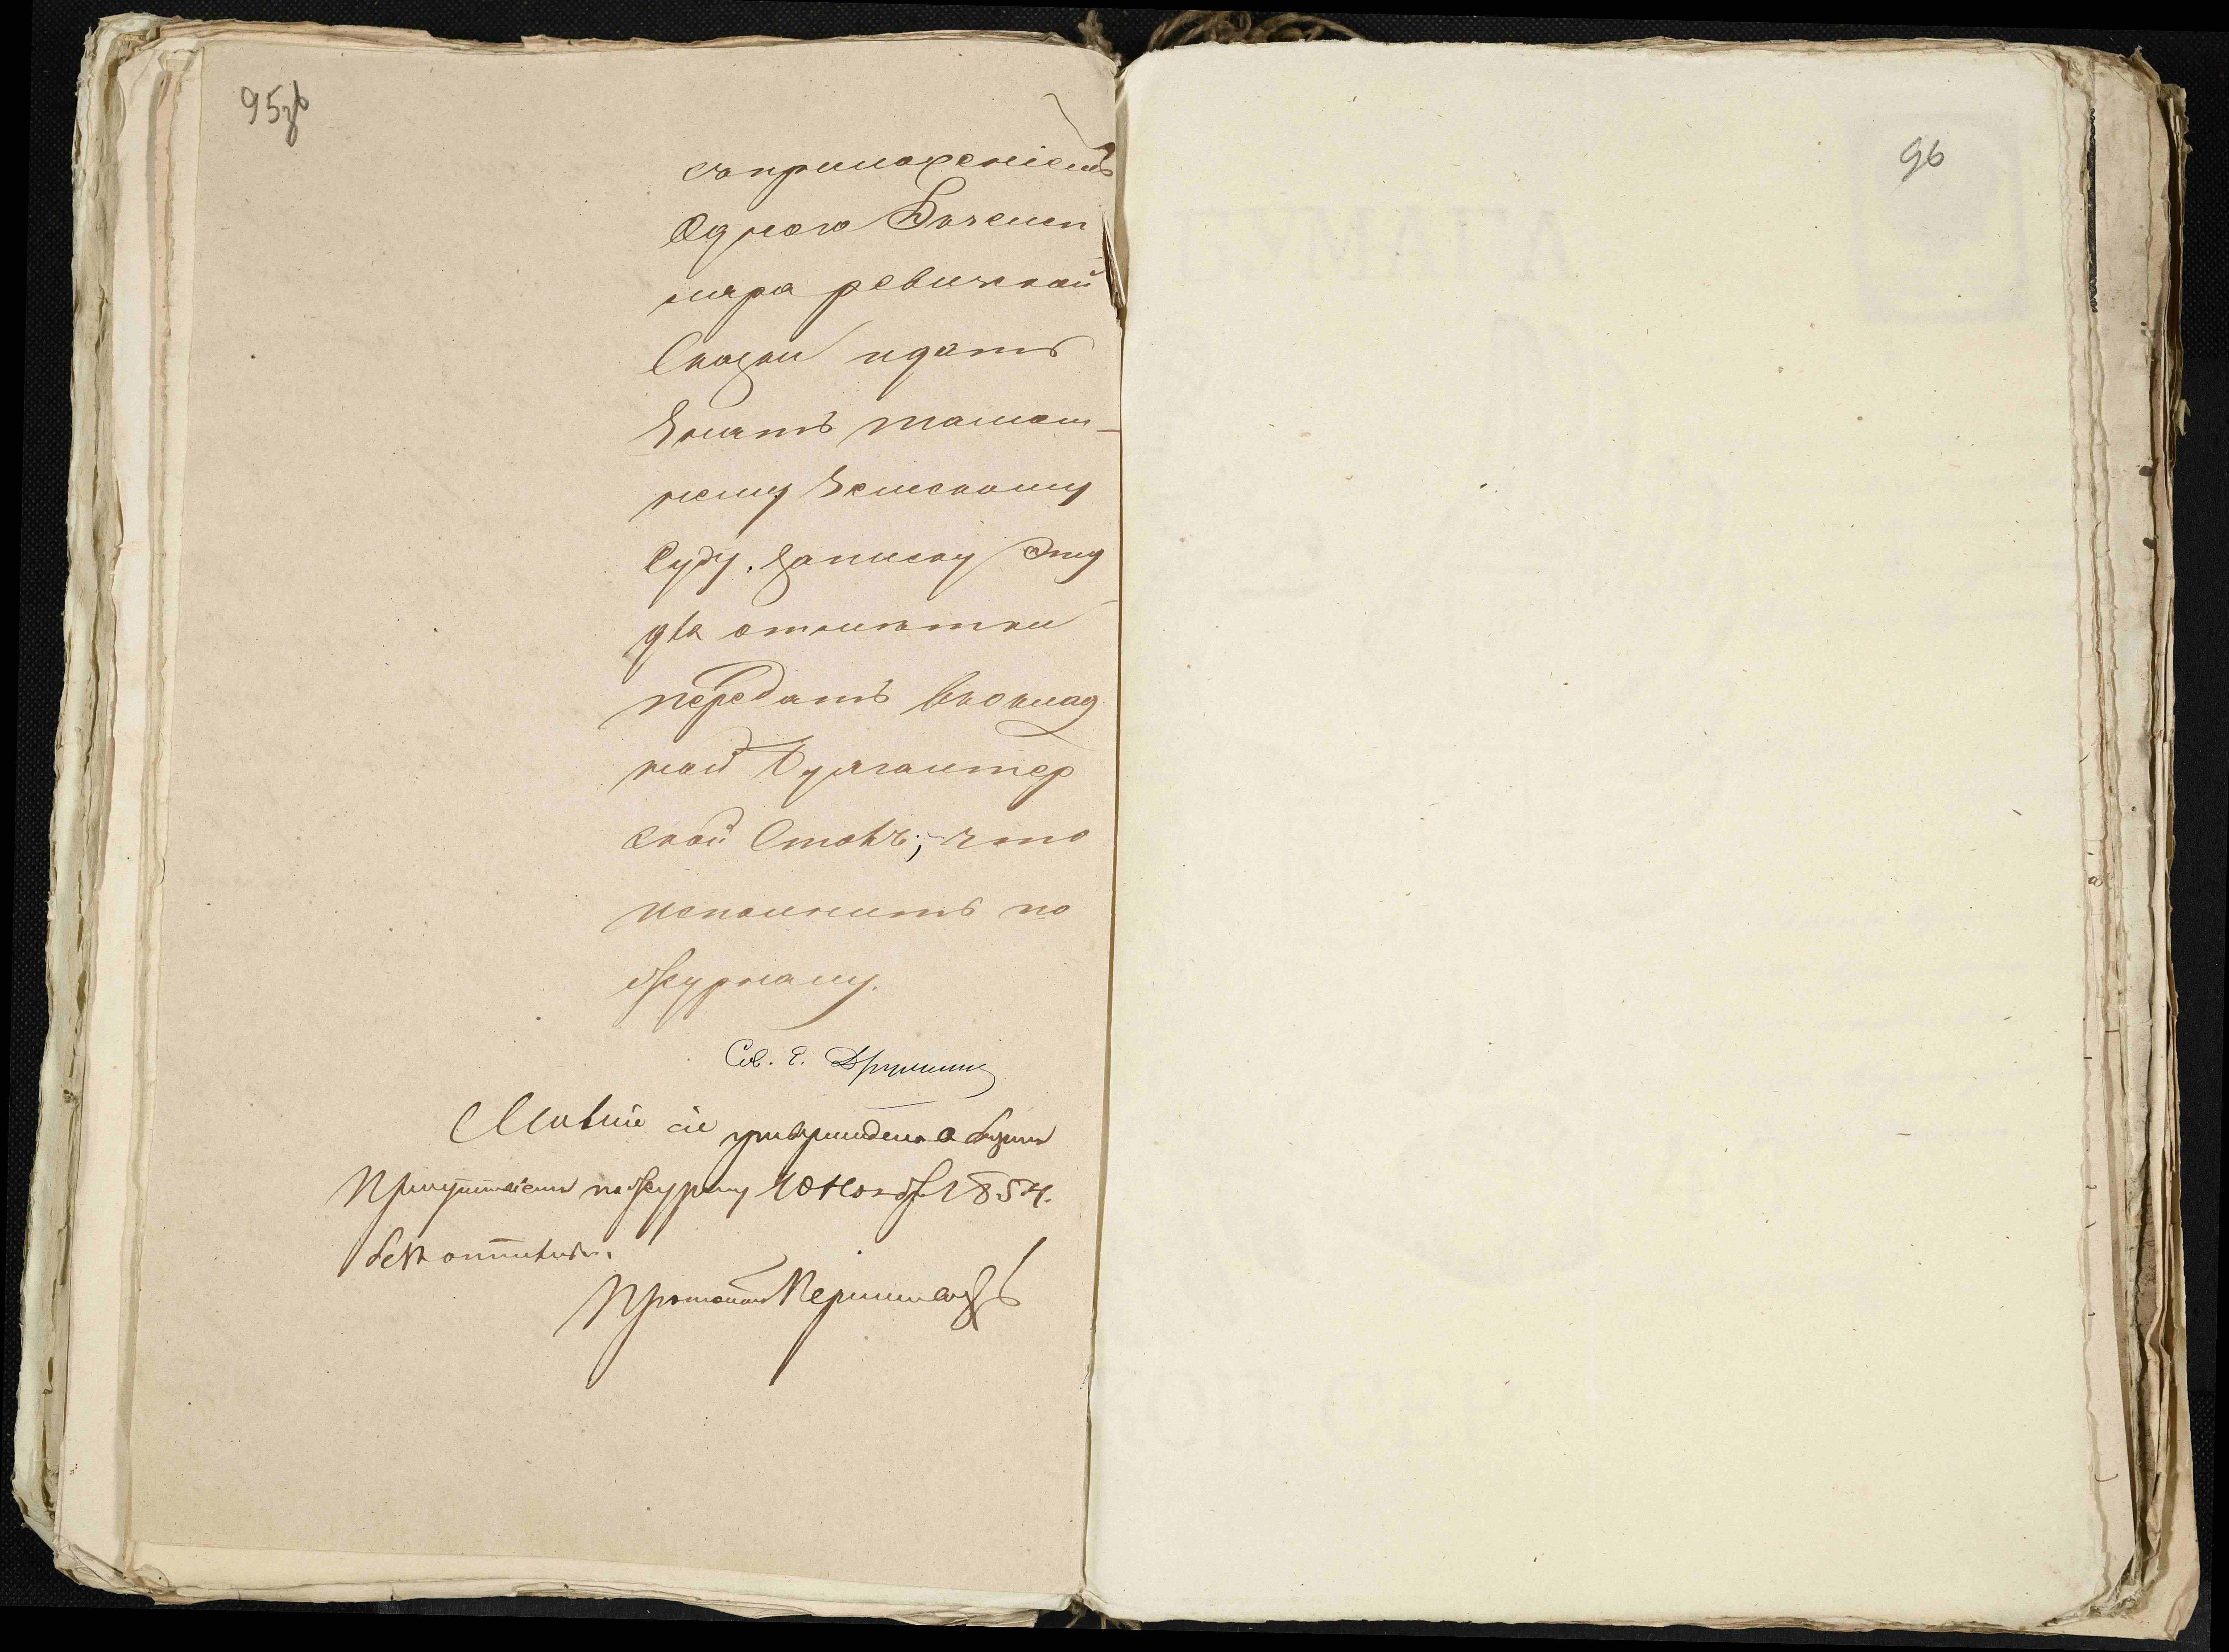 95об
съ приложеніемъ
Одного Экземп
ляра ревижской
Сказки и дать
Знать тамош-
нему Земскому
Суду. Записку эту
для отмѣтки
передать вокладной
ной Бухгалтер
ской Столъ; что
исполнить по
Журналу.
Сов.
Мнѣніе сіе утверждено общимъ
Присутствіемъ по Журналу 10 Нояб. 1854.
безъ отмѣны.
96